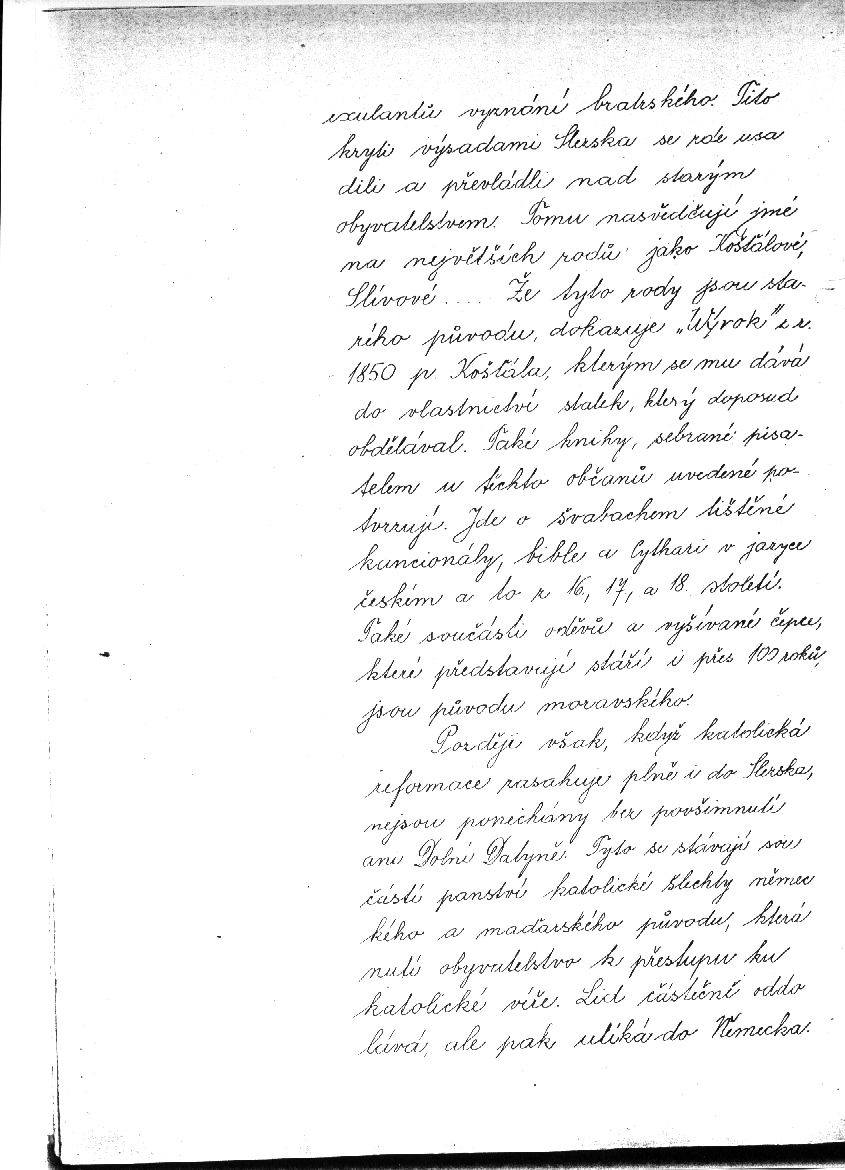 exulantů vyznání bratrského. Tito
kryti výsadami Slezska se zde usa
dili a převládli nad starým
obyvatelstvem. Tomu nasvědčují jmé
na největších rodů jako Košťálové,
Slívové .... Že tyto rody jsou sta-
rého původu, dokazuje „Výrok" z r.
1850 p. Košťála, kterým se mu dává
do vlastnictví statek, který doposud
obdělával. Také knihy, sebrané pisa-
telem u těchto občanů uvedené po-
tvrzují. Jde o švabachem tištěné
kuncionály, bible a Cythari v jazyce
českém a to z 16, 17, a 18. století.
Také součásti oděvů a vyšívané čepce,
které představují stáří i přes 100 roků,
jsou původu moravského.
Později však, když katolická
reformace zasahuje plně i do Slezska,
nejsou ponechány bez povšimnutí
ani Dolní Datyně. Tyto se stávají sou
částí panství katolické šlechty němec
kého a maďarského původu, která
nutí obyvatelstvo k přestupu ku
katolické víře. Lid částečně oddo
lává, ale pak utíká do Německa.